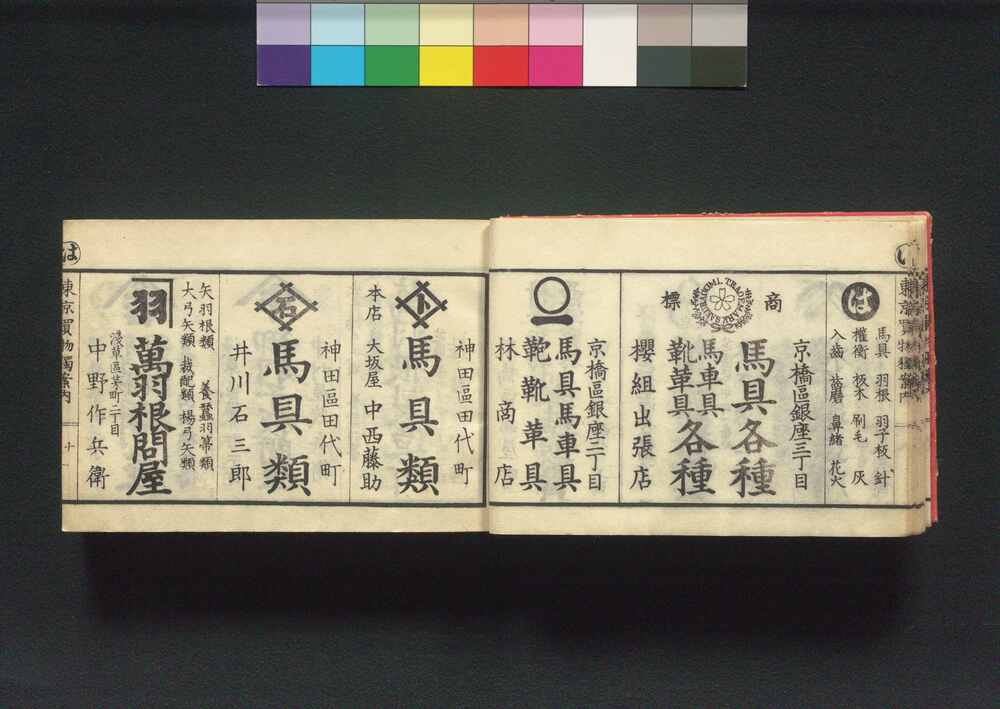 は
馬具 羽根 羽子板 針
權衡 板木 刷毛 灰
入齒 齒磨 鼻緒 花火
京橋區銀座三丁目
馬具各種
商標
馬車具
靴革具
各種
櫻組出張店
京橋區銀座二丁目
馬具馬車具
鞄靴革具
林商店
神田區田代町
馬具類
本店 大坂屋 中西藤助
神田區田代町
石
馬具類
井川石三郎
矢羽根類 養蠶羽箒類
大弓矢類 裁配類 楊弓矢類
羽
萬羽根問屋
淺草區茅町二丁目
中野作兵衛
は
東京買物獨案內
十